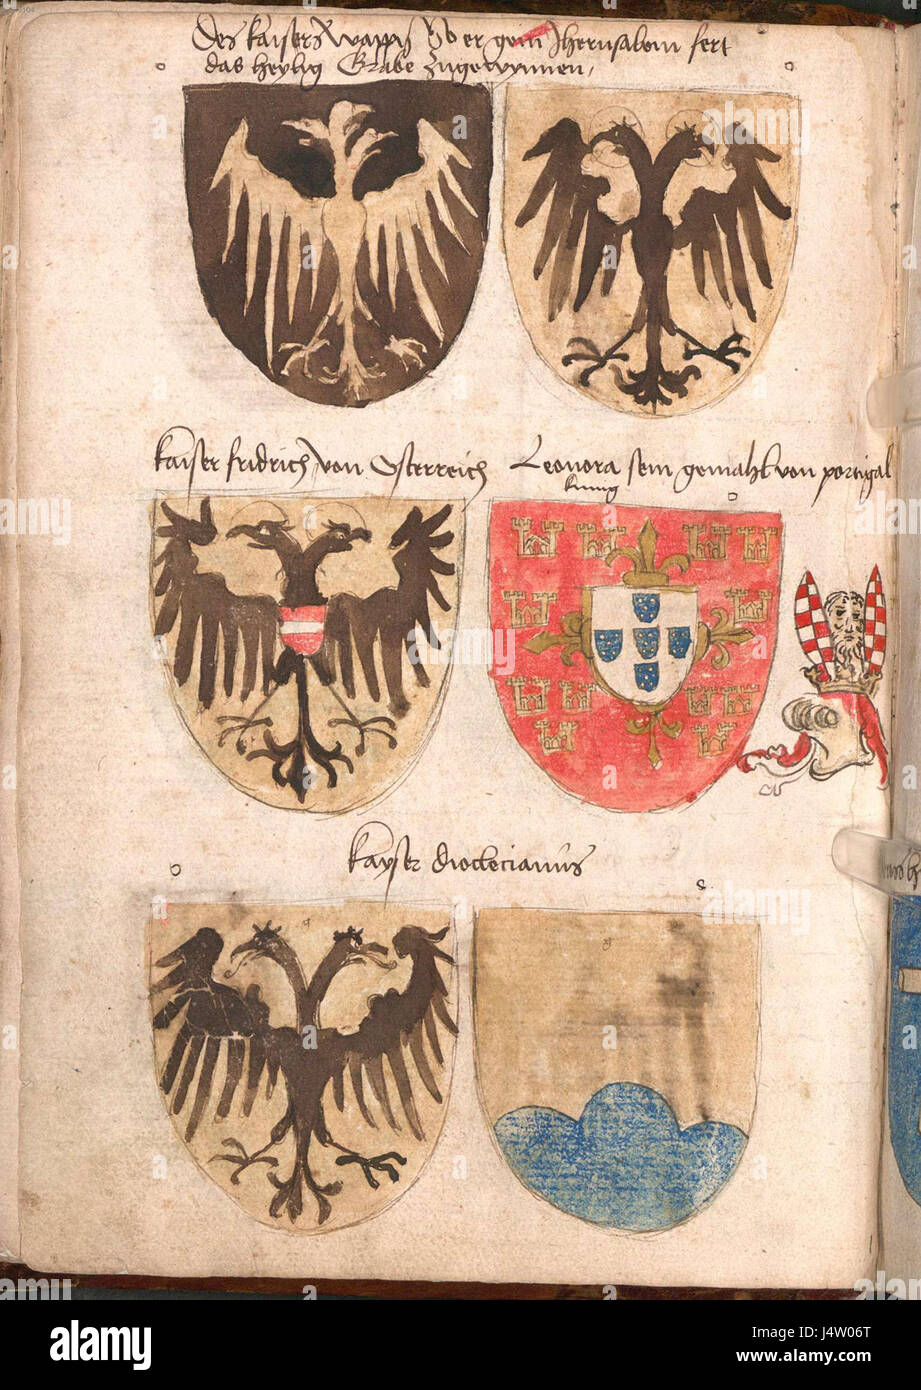 Des kaisers wappn so er gein Jherusalem fert
das heylig Grabe zugewynnen
kaiser fridrich von Osterreich
Leonora sein gemahl von portigal
kunig
kayser dioclecianus
alamy
Image ID: J4W06T
www.alamy.com